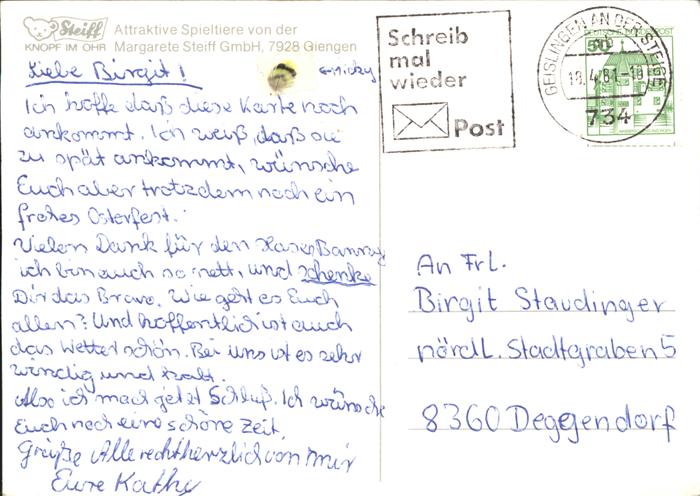 Steiff
KNOPF IM OHR
Attraktive Spieltiere von der
Margarete Steiff GmbH, 7928 Giengen
Schreib
mal
wieder
Post
GEISLINGEN AN DER STEIGE
18.4.81-18
734
50
Liebe Birgit!
Ich hoffe daß diese Karte noch
ankommt. Ich weiß, daß sie
zu spät ankommt, wünsche
Euch aber trotzdem noch ein
frohes Osterfest.
Vielen Dank für den Hasen Banny
ich bin auch so nett, und schenke
Dir das Bravo. Wie geht es Euch
allen? Und hoffentlich ist auch
das Wetter schön. Bei uns ist es sehr
windig und kalt.
Also ich mach jetzt Schluß. Ich wünsche
Euch noch eine schöne Zeit.
Grüße Alle recht herzlich von mir
Eure Kathy
An Frl.
Birgit Staudinger
nördl. Stadtgraben 5
8360 Deggendorf